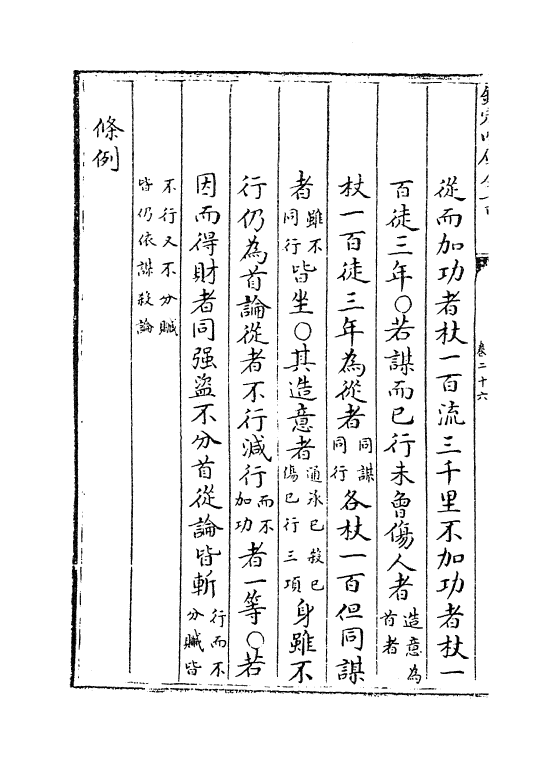 卷二十六
從而加功者杖一百流三千里不加功者杖一
百徒三年○若謀而已行未曾傷人者造意為首者
杖一百徒三年為從者同謀同行各杖一百但同謀
者雖不同行皆坐○其造意者通承已殺已傷已行三項身雖不
行仍為首論從者不行減行而不加功者一等○若
因而得財者同强盜不分首從論皆斬行而不分贓皆
不行又不分贓皆仍依謀殺論
條例